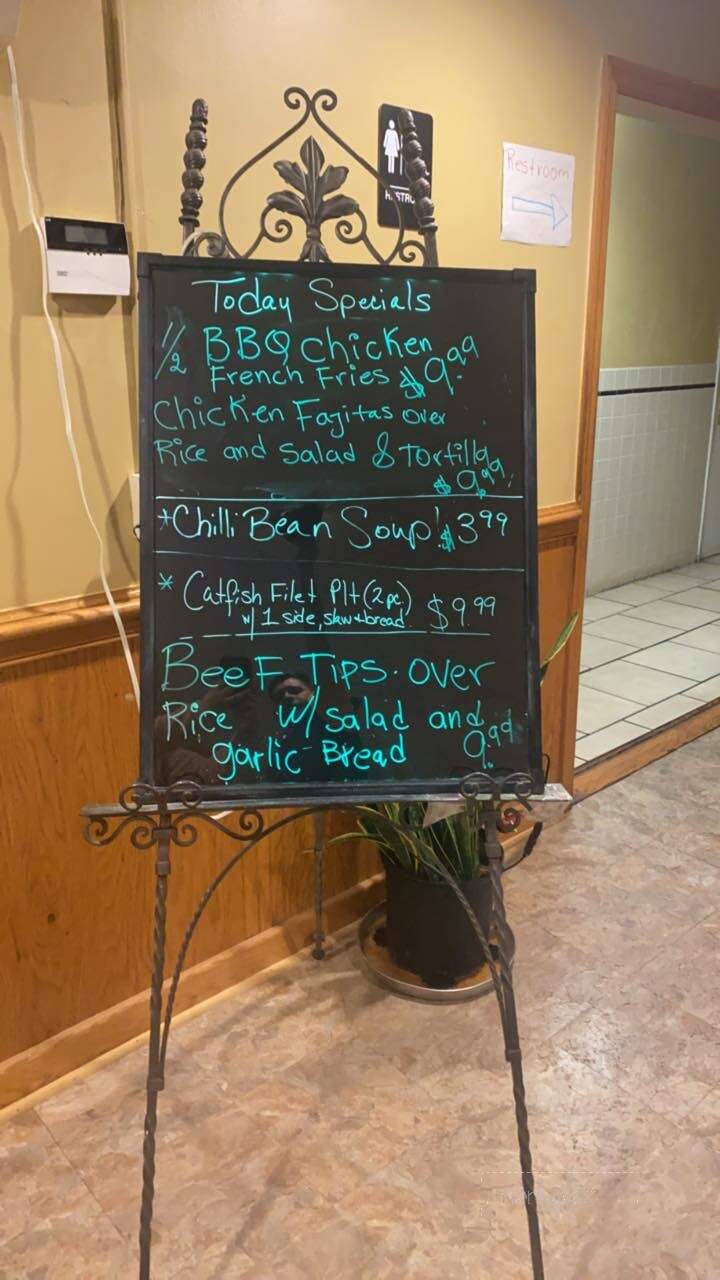 RESTRO
Restroom
Today Specials
1/2 BBQ Chicken
French Fries $9.99
Chicken Fajitas over
Rice and Salad & Tortilla
$9.99
*Chilli Bean Soup! $3.99
* Catfish Filet Plt (2 pc) $9.99
w/ 1 side, slaw + bread
Beef Tips. over
Rice w/ salad and
garlic Bread 9.99